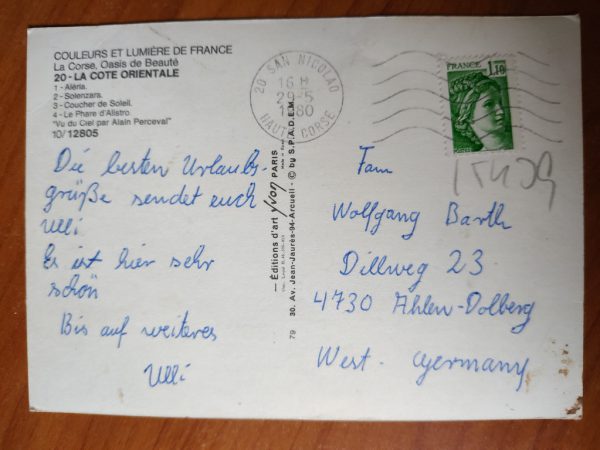 COULEURS ET LUMIÈRE DE FRANCE
La Corse, Oasis de Beauté
20 - LA COTE ORIENTALE
1 - Aléria.
2 - Solenzara.
3 - Coucher de Soleil.
4 - Le Phare d'Alistro.
"Vu du Ciel par Alain Perceval"
10/12805
Die besten Urlaubs-
grüße sendet euch
Ulli.
Es ist hier sehr
schön
Bis auf weiteres
Ulli
20 SAN NICOLAO
16 H
29-5
1980
HAUTE CORSE
FRANCE
1,10
Fam
Wolfgang Barth
Dillweg 23
4730 Ahlen-Dolberg
West-Germany
— Éditions d'art yvon PARIS
79 30, Av. Jean-Jaurès-94-Arcueil - © by S.P.A.D.E.M.